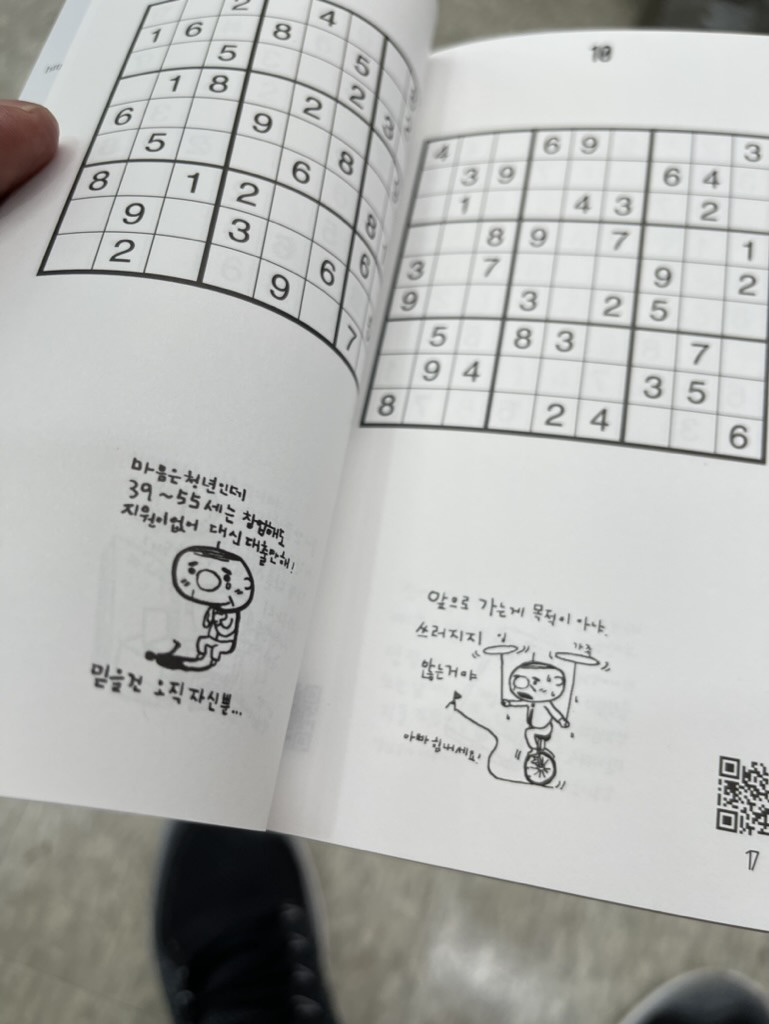 2 4
1 6 8
5 5
1 8 2
6 2 3
5 9 8
8 1 6
9 2 8
2 3 6 6
9 7
마음은 청년인데
39~55세는 창업해도
지원이없어 대신 대출만해!
믿을건 오직 자신뿐...
10
4 6 9 3
3 9 6 4
1 4 3 2
8 9 7 1
3 7 9 2
9 3 2 5
5 8 3 7
9 4 3 5
8 2 4 6
앞으로 가는게 목적이 아냐.
쓰러지지
않는거야
일
가족
아빠 힘내세요!
17